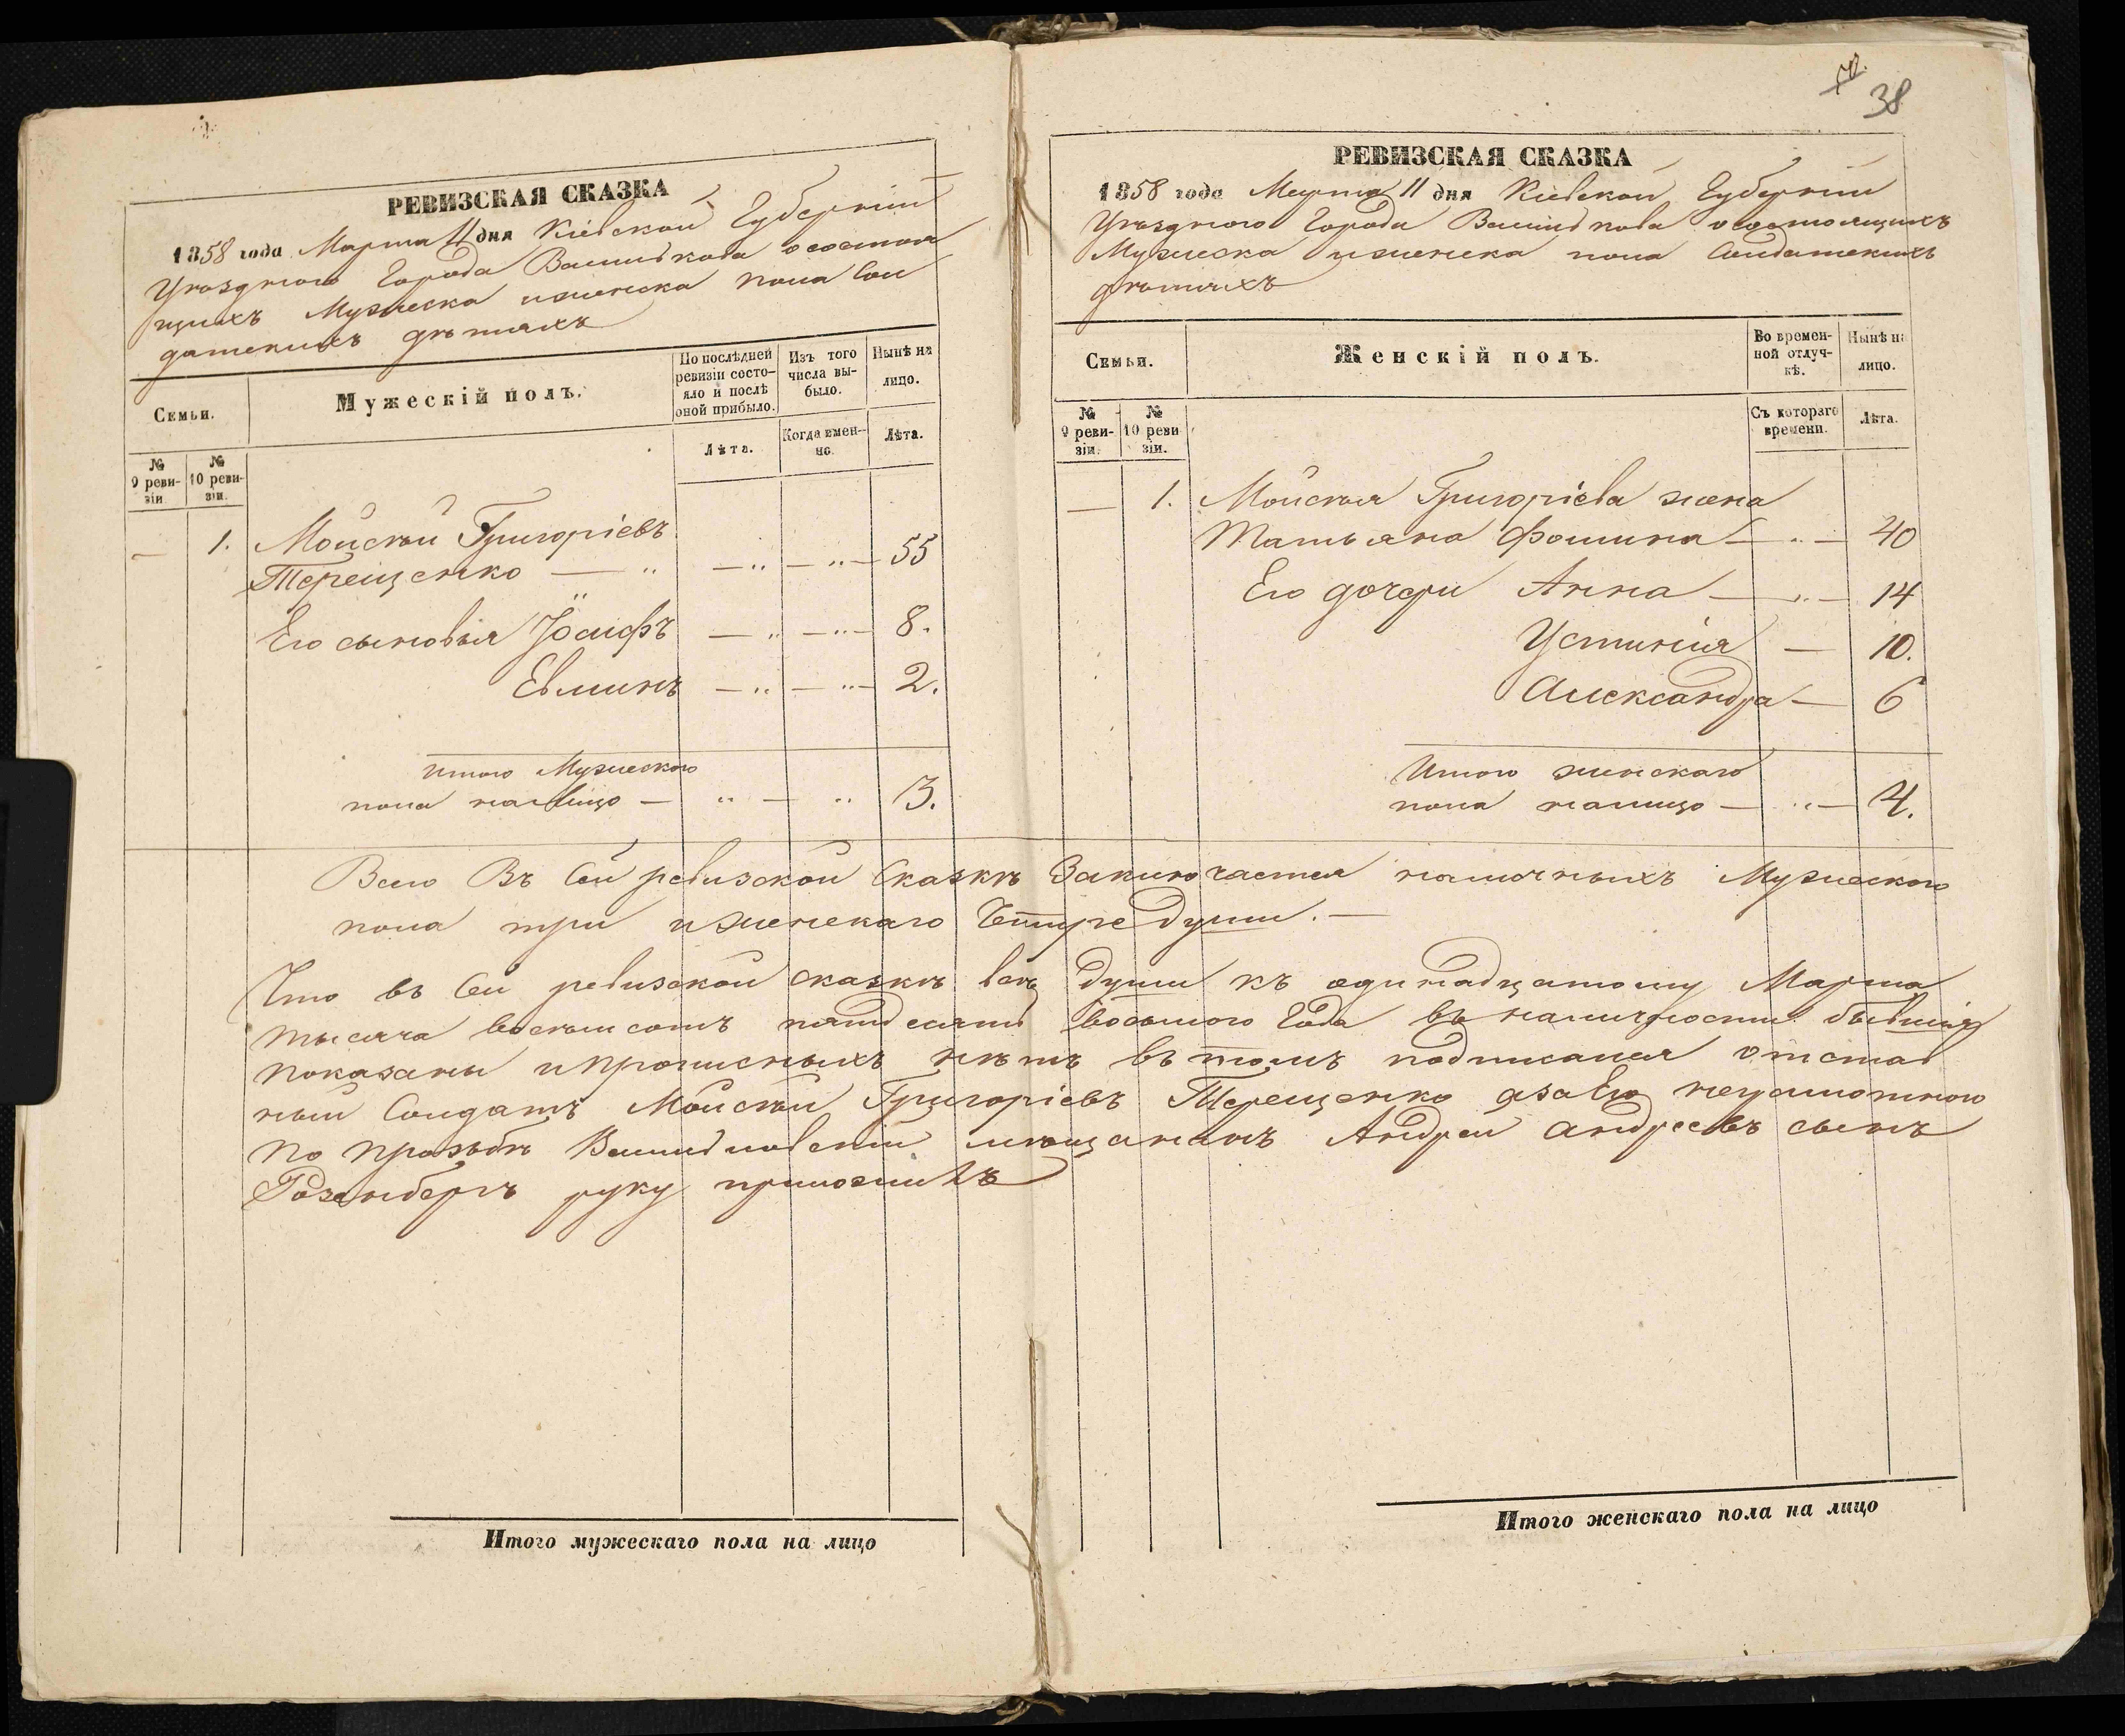 38
РЕВИЗСКАЯ СКАЗКА
1858 года Марта 11 дня Кіевской Губерніи
Уѣзднаго Города Василькова о состоя
щихъ Мужеска и женска пола Сол
датскихъ дѣтяхъ
Семьи.
Мужескій полъ.
По послѣдней ревизіи состо-
яло и послѣ оной прибыло.
Изъ того числа вы-
было.
Нынѣ на лицо.
№ 9 реви-
зіи.
№ 10 реви-
зіи.
Лѣта.
Когда имен-
но.
Лѣта.
— 1. Мойсей Григоріевъ
Терещенко — " — " — " — 55
Его сыновья Іосифъ — " — " — 8.
Евминъ — " — " — 2.
Итого Мужескаго
пола налицо — " — " 3.
РЕВИЗСКАЯ СКАЗКА
1858 года Марта 11 дня Кіевской Губерніи
Уѣзднаго Города Василькова о состоящихъ
Мужеска и женска пола Солдатскихъ
дѣтяхъ
Семьи.
Женскій полъ.
Во времен-
ной отлуч-
кѣ.
Нынѣ на
лицо.
№ 9 реви-
зіи.
№ 10 реви
зіи.
Съ котораго
времени.
Лѣта.
— 1. Мойсея Григоріева жена
Татьяна Фомина — " — 40
Его дочери Анна — " — 14
Устинія — 10.
Александра — 6
Итого женскаго
пола налицо — " — 4.
Всего Въ Сей ревизской Сказкѣ Заключается наличныхъ Мужескаго
пола три и женскаго Четыре души. —
Что въ Сей ревизской сказкѣ всѣ души къ одинадцатому Марта
тысяча восемьсотъ пятдесятъ восьмого Года въ наличности бывшія
показаны и прописныхъ нѣтъ въ томъ подписался отстав
ный Солдатъ Мойсей Григоріевъ Терещенко а за Его неграмотного
по прозьбѣ Васильковскій мѣщанинъ Андрей Андреевъ сынъ
Розенбергъ руку приложилъ
Итого мужескаго пола на лицо
Итого женскаго пола на лицо